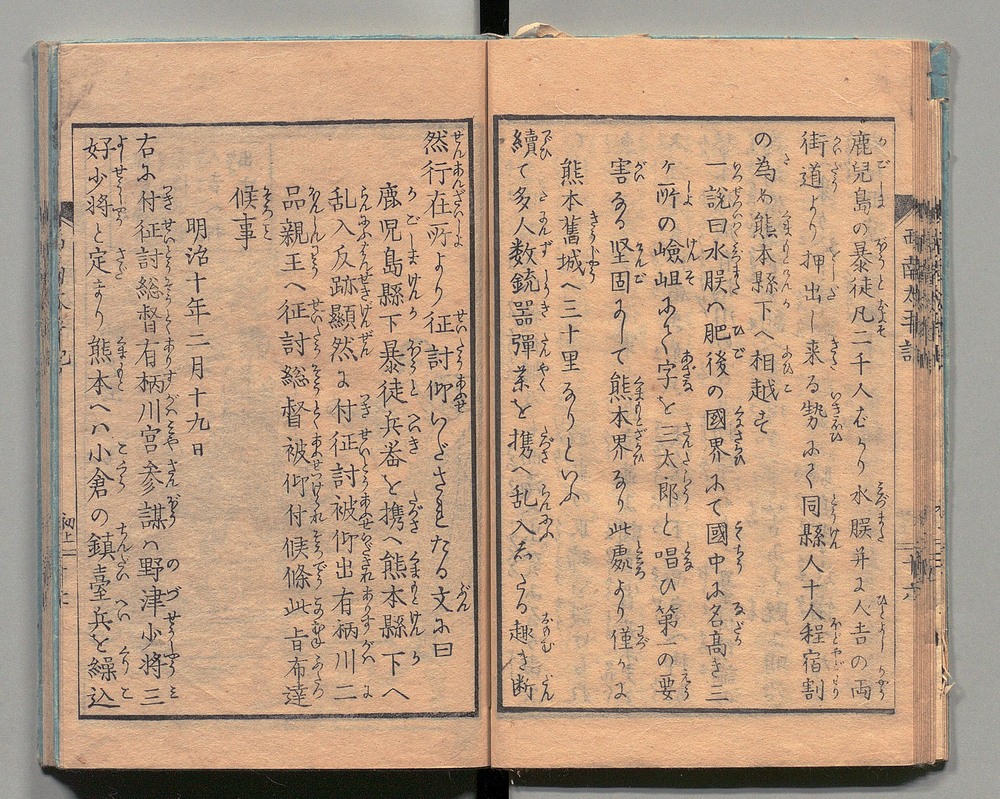 鹿兒島の暴徒凡二千人むかり水脵并に人吉の両
街道より押出し来る勢ひにて同縣人十人程宿割
の為め熊本縣下へ相越す
一說曰水脵ハ肥後の國界にて國中に名高き三
ヶ所の嶮岨にて字を三太郎と唱ひ第一の要
害なる堅固にして熊本界なり此處より僅かに
熊本舊城へ三十里なりといふ
續て多人数銃器彈薬を携へ乱入志たる趣き断
然行在所より征討仰いだされたる文に曰
鹿児島縣下暴徒兵器を携へ熊本縣下へ
乱入反跡顯然に付征討被仰出有栖川二
品親王へ征討総督被仰付候條此旨布達
候事
明治十年二月十九日
右に付征討総督有栖川宮参謀ハ野津少将三
好少将と定まり熊本へハ小倉の鎮臺兵を繰込